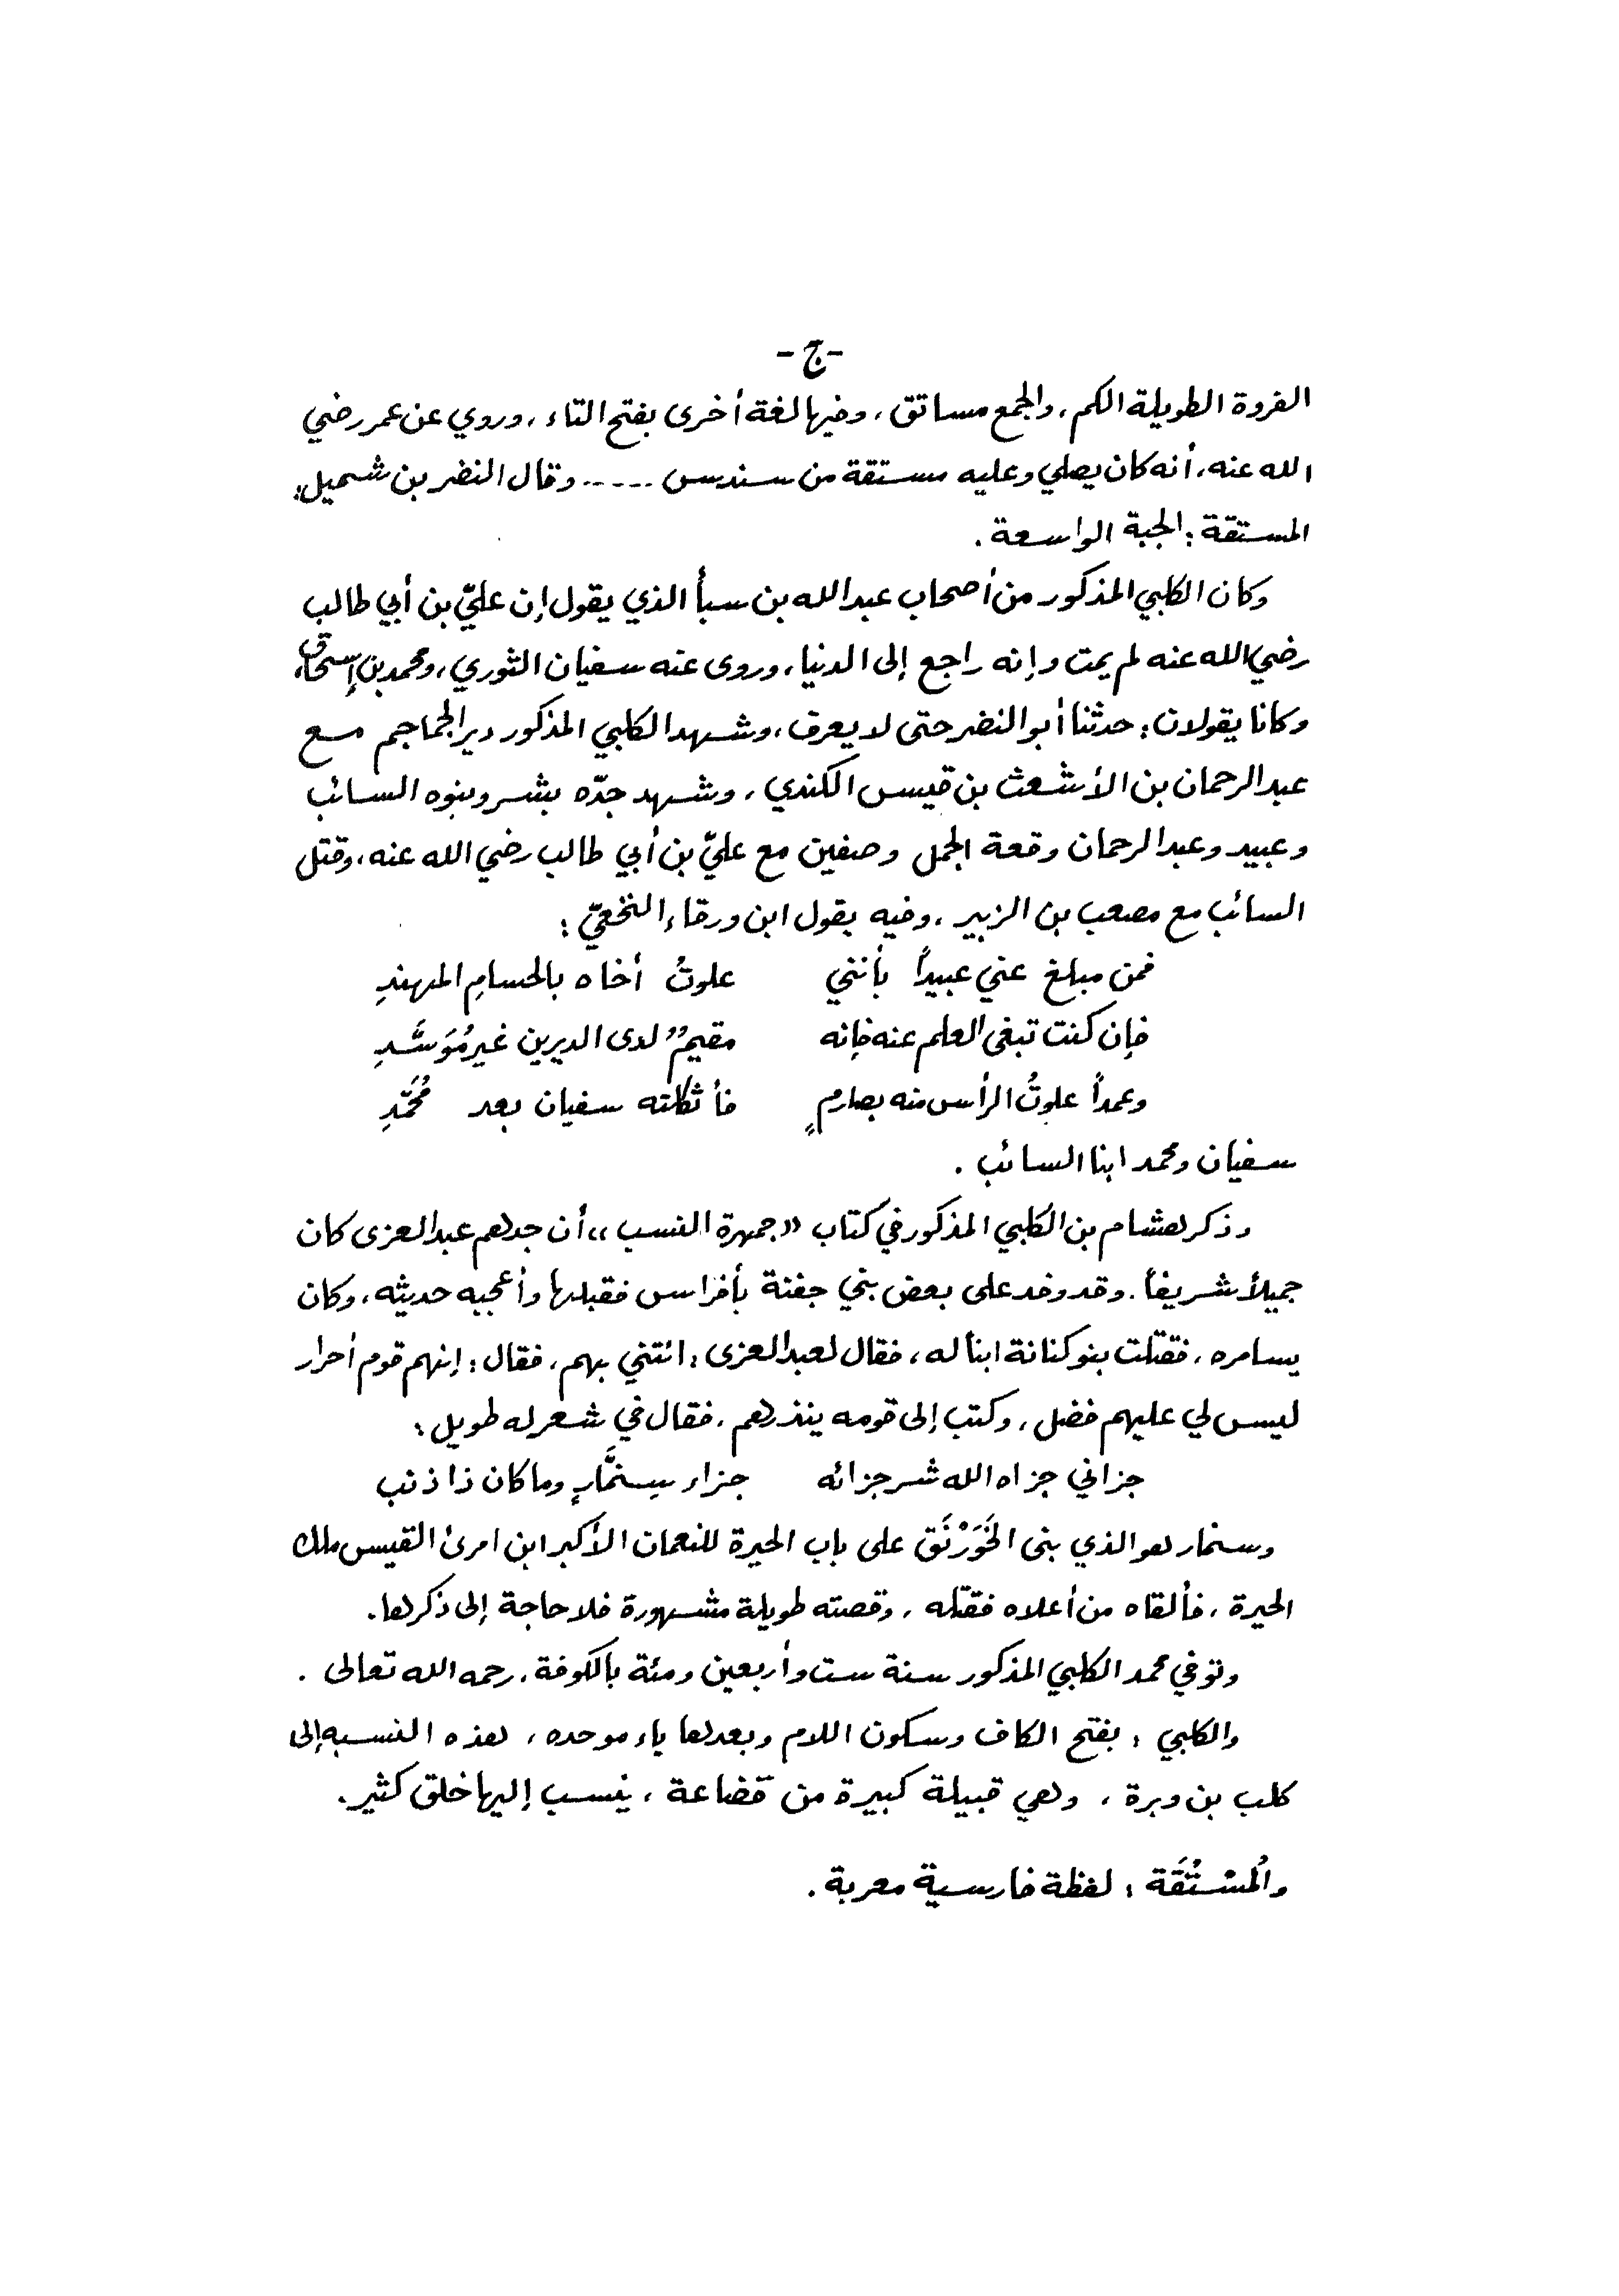 -ج-
الفروة الطويلة الكم، والجمع مساتق، وفيها لغة أخرى بفتح التاء، وروي عن عمر رضي
الله عنه، أنه كان يصلي وعليه مستقة من سندس ..... وقال النضر بن شميل:
المستقة: الجبة الواسعة.
وكان الكلبي المذكور من أصحاب عبدالله بن سبأ الذي يقول إن عليّ بن أبي طالب
رضي الله عنه لم يمت وإنه راجع إلى الدنيا، وروى عنه سفيان الثوري، ومحمد بن إسحاق،
وكانا يقولان: حدثنا أبو النضر حتى لا يعرف، وشهد الكلبي المذكور دير الجماجم مع
عبدالرحمان بن الأشعث بن قيس الكندي، وشهد جدّه بشر وبنوه السائب
وعبيد وعبدالرحمان وقعة الجمل وصفين مع عليّ بن أبي طالب رضي الله عنه، وقتل
السائب مع مصعب بن الزبير، وفيه يقول ابن ورقاء النخعيّ:
فمن مبلغ عني عبيداً بأنني علوتُ أخاه بالحسامِ المهندِ
فإن كنت تبغي العلم عنه فإنه مقيمٌ لدى الديرين غير مُوَسَّدِ
وعمداً علوتُ الرأس منه بصارمٍ فأثكلته سفيان بعد مُحَمَّدِ
سفيان ومحمد ابنا السائب.
وذكر هشام بن الكلبي المذكور في كتاب «جمهرة النسب» أن جدهم عبدالعزى كان
جميلاً شريفاً. وقد وفد على بعض بني جفنة بأفراس فقبلها وأعجبه حديثه، وكان
يسامره، فقتلت بنو كنانة ابناً له، فقال لعبدالعزى: ائتني بهم، فقال: إنهم قوم أحرار
ليس لي عليهم فضل، وكتب إلى قومه ينذرهم، فقال في شعر له طويل:
جزاني جزاه الله شر جزائه جزاء سِنِمَّارٍ وما كان ذا ذنب
وسنمار هو الذي بنى الخَوَرْنَق على باب الحيرة للنعمان الأكبر ابن امرئ القيس ملك
الحيرة، فألقاه من أعلاه فقتله، وقصته طويلة مشهورة فلا حاجة إلى ذكرها.
وتوفي محمد الكلبي المذكور سنة ست وأربعين ومئة بالكوفة، رحمه الله تعالى.
والكلبي: بفتح الكاف وسكون اللام وبعدها باء موحده، هذه النسبه إلى
كلب بن وبرة، وهي قبيلة كبيرة من قضاعة، ينسب إليها خلق كثير.
والمُسْتُقَة: لفظة فارسية معربة.